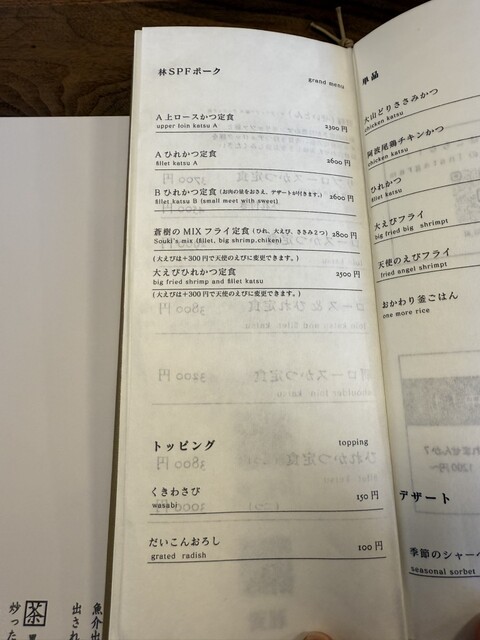 林SPFポーク
grand menu
A 上ロースかつ定食
upper loin katsu A
2300 円
A ひれかつ定食
fillet katsu A
2600 円
B ひれかつ定食 (お肉の量をおさえ、デザートが付きます。)
fillet katsu B (small meet with sweet)
2600 円
蒼樹のMIXフライ定食 (ひれ、大えび、ささみ1つ)
Souki's mix (fillet, big shrimp,chiken)
2800 円
(大えびは+300円で天使のえびに変更できます。)
大えびひれかつ定食
big fried shrimp and fillet katsu
2500 円
(大えびは+300円で天使のえびに変更できます。)
トッピング
topping
くきわさび
wasabi
150 円
だいこんおろし
grated radish
100 円
単品
大山どりささみかつ
chicken katsu
阿波尾鶏チキンかつ
A chicken katsu
ひれかつ
fillet katsu
大えびフライ
big fried big shrimpt
天使のえびフライ
fried angel shrimpt
おかわり釜ごはん
one more rice
デザート
季節のシャーベ
seasonal sorbet
魚介出
出され
茶
炒った